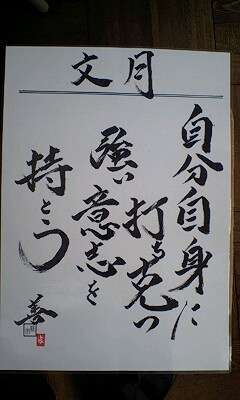 文月
自分自身に
打ち克つ
強い意志を
持とう
善